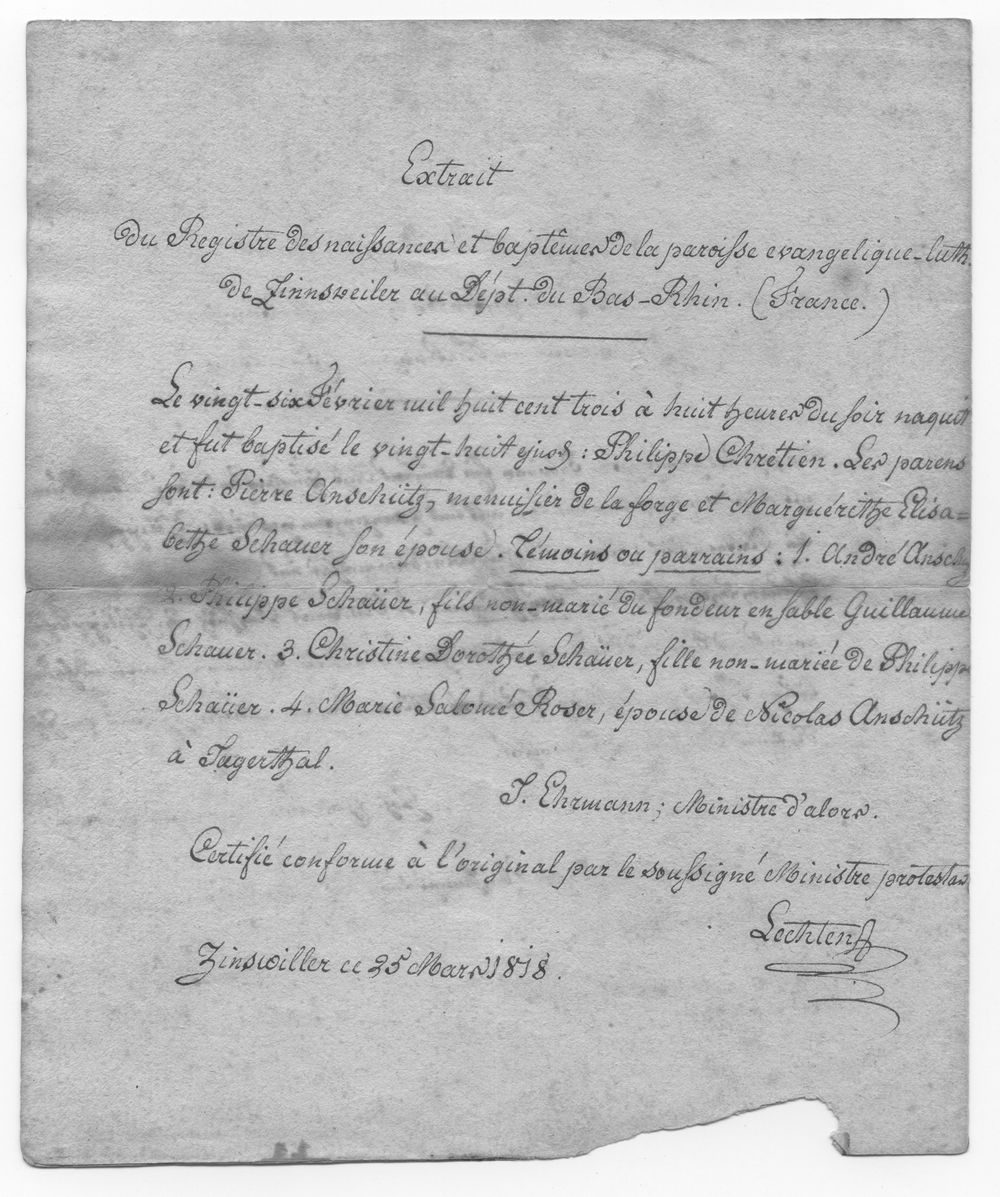 Extrait
du Registre des naissances et baptêmes de la paroisse evangelique-luth.
de Zinnsweiler au Dépt. du Bas-Rhin. (France.)
Le vingt-six Février mil huit cent trois à huit heures du soir naquit
et fut baptisé le vingt-huit ejusd : Philippe Chrétien. Les parens
sont: Pierre Anschütz, menuisier de la forge et Marguérithe Elisa=
bethe Schauer son épouse. Témoins ou parrains : 1. André Anschüz
2. Philippe Schaüer, fils non-marié du fondeur en sable Guillaume
Schauer. 3. Christine Dorothée Schaüer, fille non-mariée de Philipp
Schaüer. 4. Marie Salomé Roser, épouse de Nicolas Anschütz
à Jaegerthal.
J. Ehrmann; Ministre d'alors.
Certifié conforme à l'original par le soussigné Ministre protestan
Zinswiller ce 25 Mars 1818.